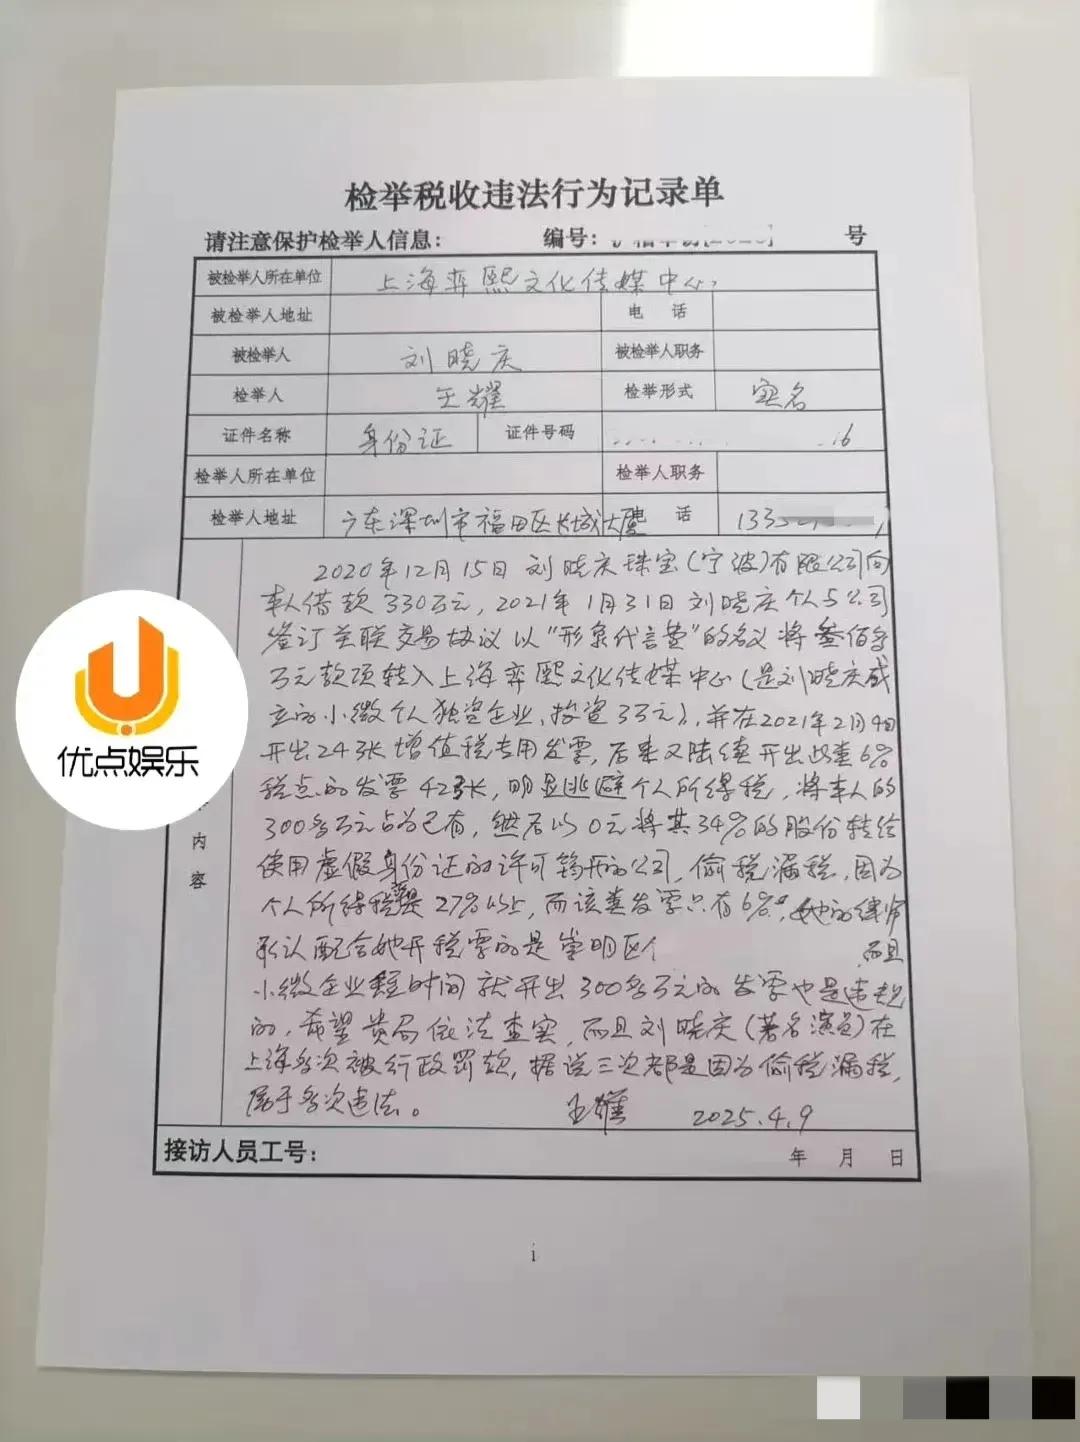 检举税收违法行为记录单
请注意保护检举人信息： 编号： 号
被检举人所在单位 上海弈熙文化传媒中心
被检举人地址 电 话
被检举人 刘晓庆 被检举人职务
检举人 王耀 检举形式 实名
证件名称 身份证 证件号码 16
检举人所在单位 检举人职务
检举人地址 广东深圳市福田区长城大厦 电 话 133
2020年12月15日刘晓庆珠宝(宁波)有限公司向
本人借款330万元，2021年1月31日刘晓庆个人与公司
签订关联交易协议以“形象代言费”的名义将叁佰多
万元款项转入上海弈熙文化传媒中心(是刘晓庆成
立的小微个人独资企业，投资3万元)，并在2021年2月4日
开出24张增值税专用发票，后来又陆续开出此类6%
税点的发票42张，明显逃避个人所得税，将本人的
300多万元占为己有，然后以0元将其34%的股份转给
使用虚假身份证的许可筹开的公司，偷税漏税，因为
个人所得税是27%以上，而该类发票只有6%，她的律师
承认配合她开税票的是崇明区个 而且
小微企业短时间就开出300多万元的发票也是违规
的，希望贵局依法查实，而且刘晓庆(著名演员)在
上海多次被行政罚款，据说三次都是因为偷税漏税，
属于多次违法。 王耀 2025.4.9
内
容
接访人员工号： 年 月 日
i
优点娱乐